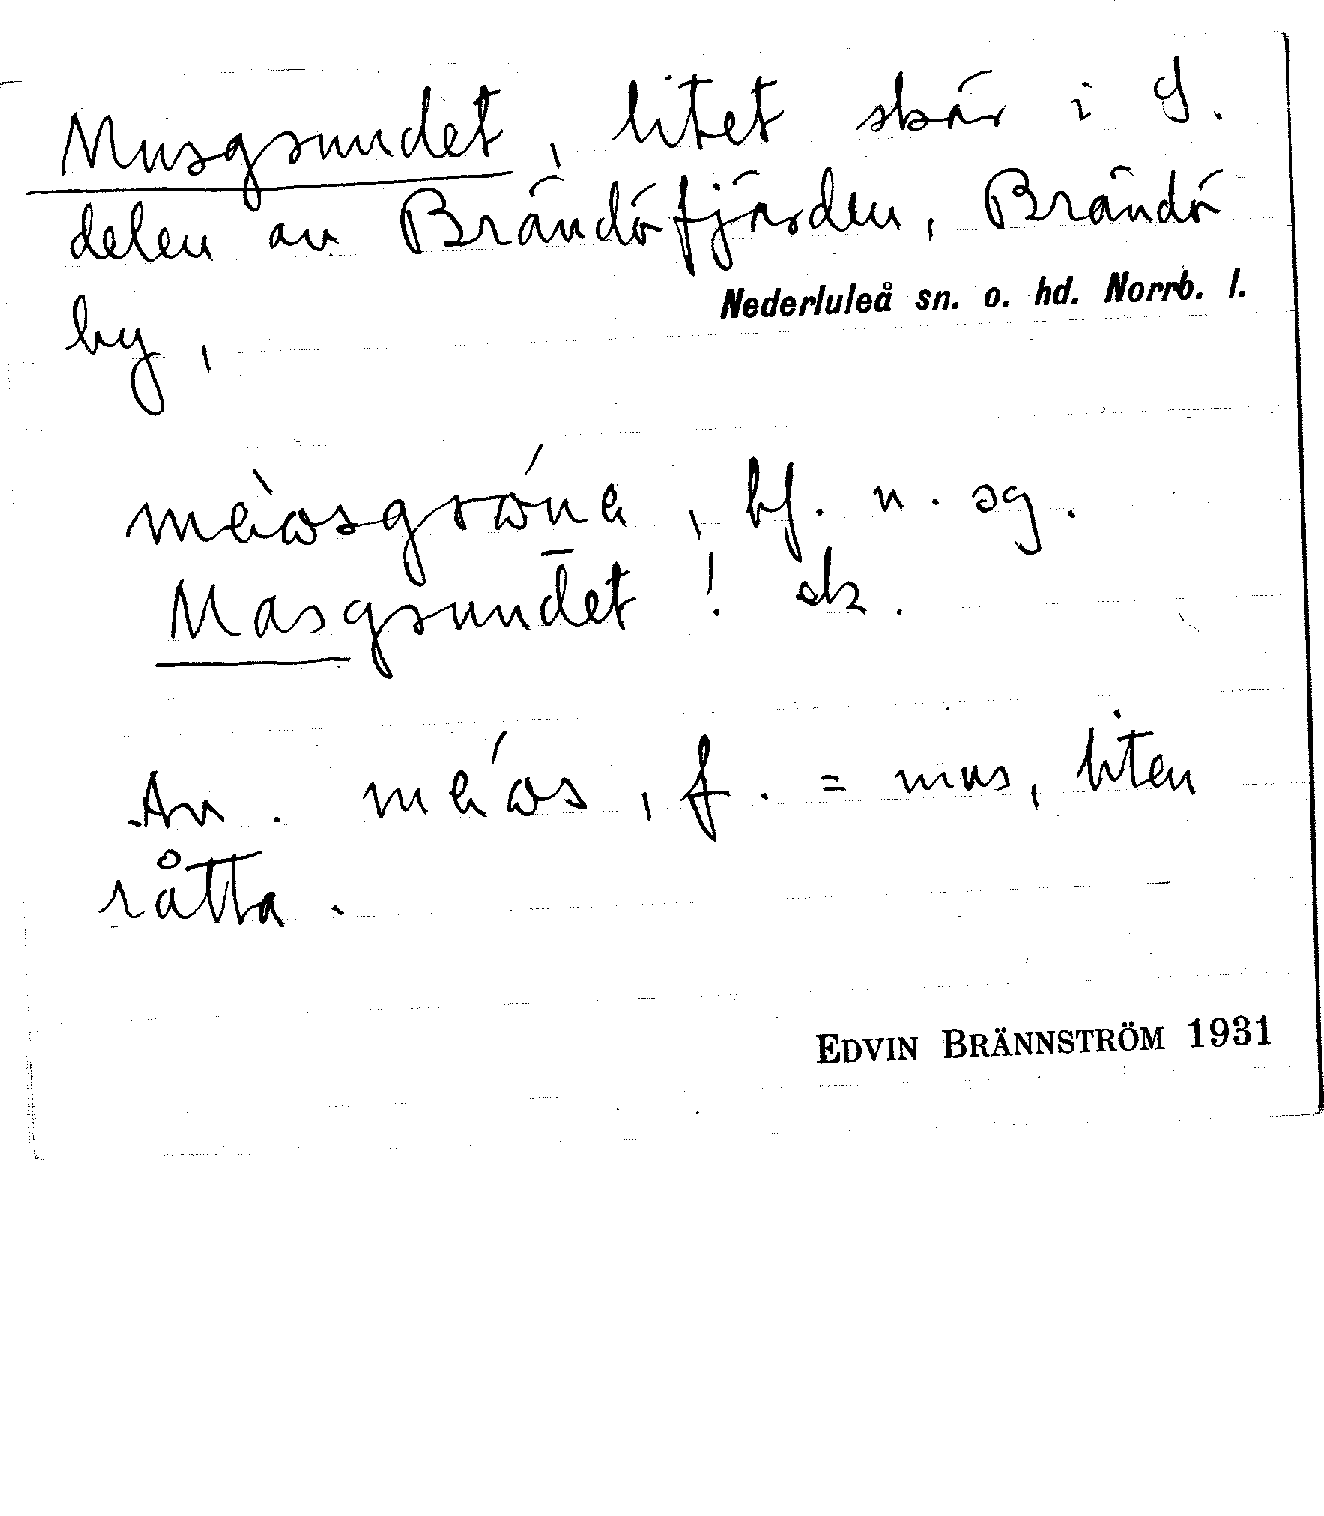 Musgsundet, litet skär i S.
delen av Brändöfjärden, Brändö
by,
Nederluleå sn. o. hd. Norrb. l.
bf. n. sg.
Masgsundet! sk.
Av. f. = mus, liten
råtta.
EDVIN BRÄNNSTRÖM 1931